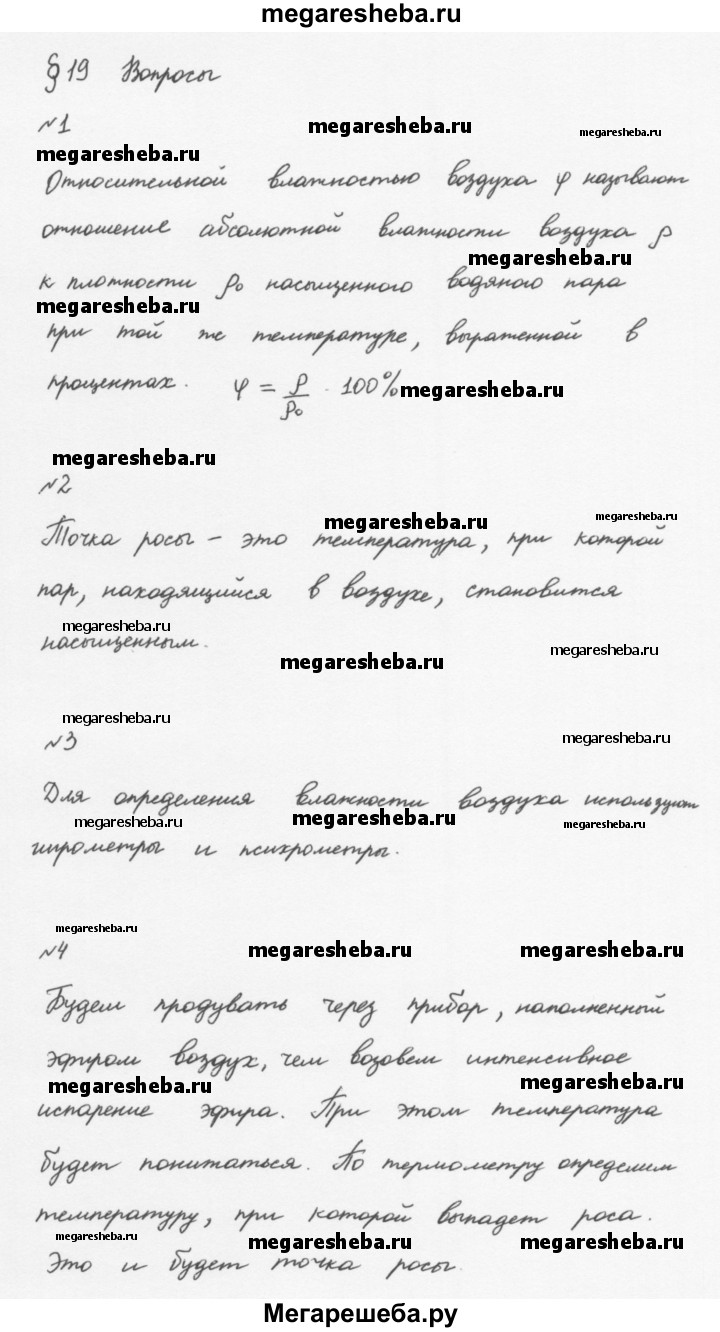 megaresheba.ru
§ 19 Вопросы
№1
megaresheba.ru megaresheba.ru
megaresheba.ru
Относительной влажностью воздуха φ называют
отношение абсолютной влажности воздуха ρ
megaresheba.ru
к плотности ρ₀ насыщенного водяного пара
megaresheba.ru
при той же температуре, выраженной в
процентах. φ = ρ/ρ₀ · 100% megaresheba.ru
megaresheba.ru
№2
megaresheba.ru megaresheba.ru
Точка росы – это температура, при которой
пар, находящийся в воздухе, становится
megaresheba.ru
насыщенным. megaresheba.ru
megaresheba.ru
megaresheba.ru
№3 megaresheba.ru
Для определения влажности воздуха используют
megaresheba.ru megaresheba.ru megaresheba.ru
гигрометры и психрометры.
megaresheba.ru
№4 megaresheba.ru megaresheba.ru
Будем продувать через прибор, наполненный
эфиром воздух, чем возовем интенсивное
megaresheba.ru megaresheba.ru
испарение эфира. При этом температура
будет понижаться. По термометру определим
температуру, при которой выпадет роса.
megaresheba.ru megaresheba.ru megaresheba.ru
Это и будет точка росы.
Мегарешеба.ру